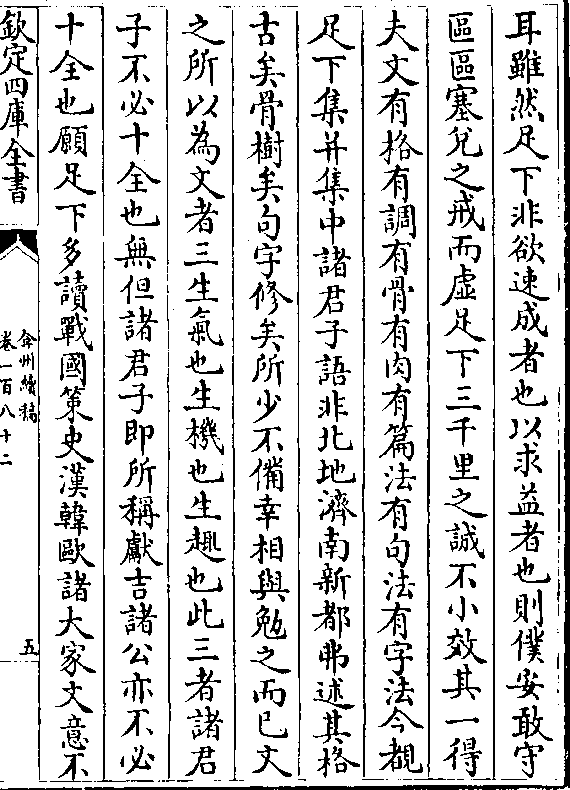 耳雖然足下非欲速成者也以求益者也則僕安敢守
區區塞兌之戒而虛足下三千里之誠不小效其一得
夫文有格有調有骨有肉有篇法有句法有字法今覩
足下集并集中諸君子語非北地濟南新都弗述其格
古矣骨樹矣句字修矣所少不備幸相與勉之而已文
之所以為文者三生氣也生機也生趣也此三者諸君
子不必十全也無但諸君子即所稱獻吉諸公亦不必
十全也願足下多讀戰國策史漢韓歐諸大家文意不
欽定四庫全書
弇州續稿
卷一百八十二
五